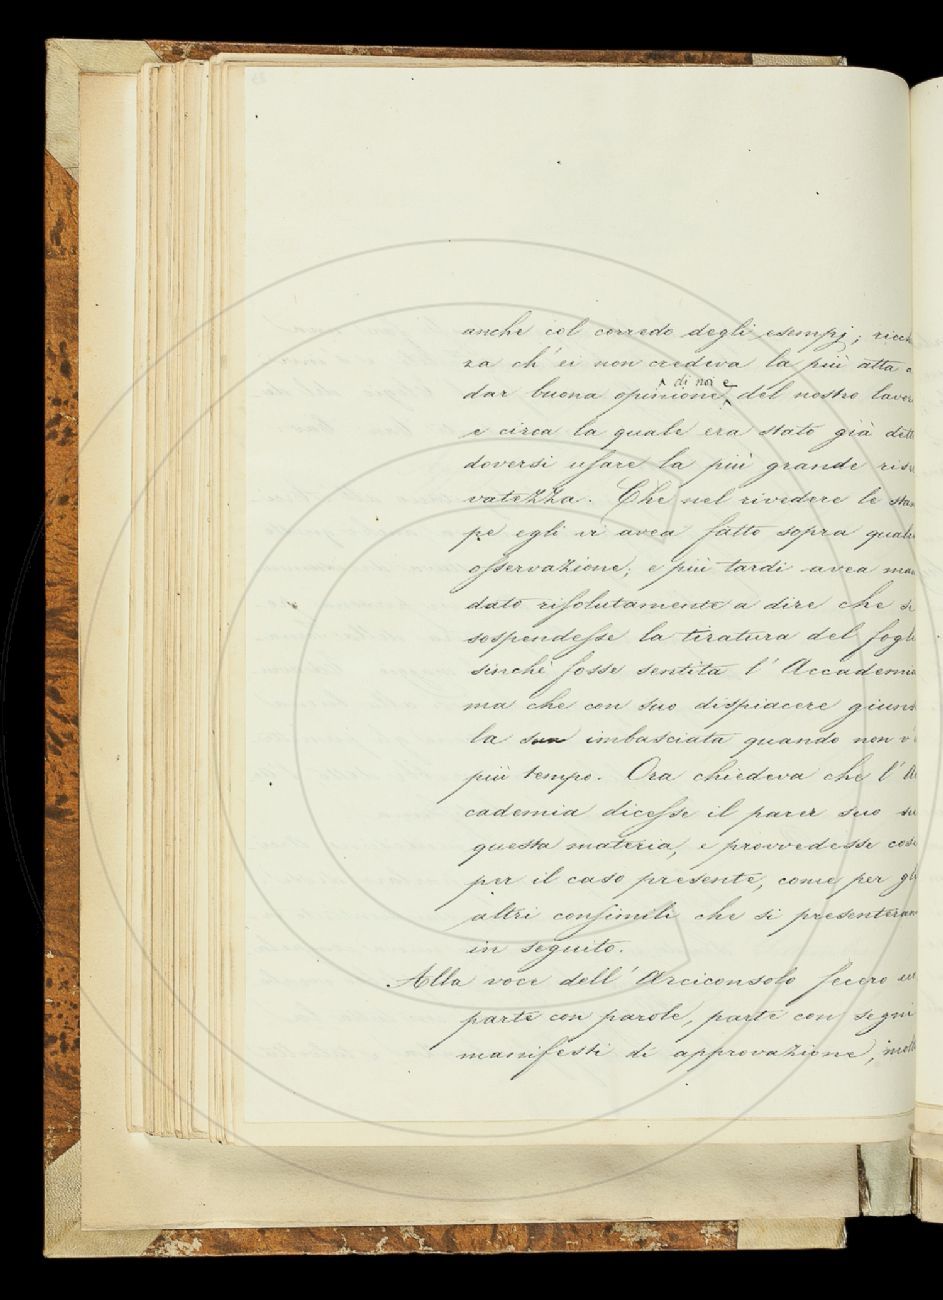 anche col corredo degli esempj; ricch
za ch'ei non credeva la più atta a
di noi e
dar buona opinione del nostro lavor
e circa la quale era stato già dett
doversi usare la più grande rise
vatezza. Che nel rivedere le stam
pe egli vi avea fatto sopra qualch
osservazione; e più tardi avea man
dato risolutamente a dire che si
sospendesse la tiratura del fogli
sinchè fosse sentita l'Accademia
ma che con suo dispiacere giuns
la imbasciata quando non v'e
più tempo. Ora chiedeva che l'Ac
cademia dicesse il parer suo su
questa materia, e provvedesse così
per il caso presente, come per gli
altri consimili che si presenteran
in seguito.
Alla voce dell'Arciconsolo fecero eco
parte con parole, parte con segni
manifesti di approvazione, molt